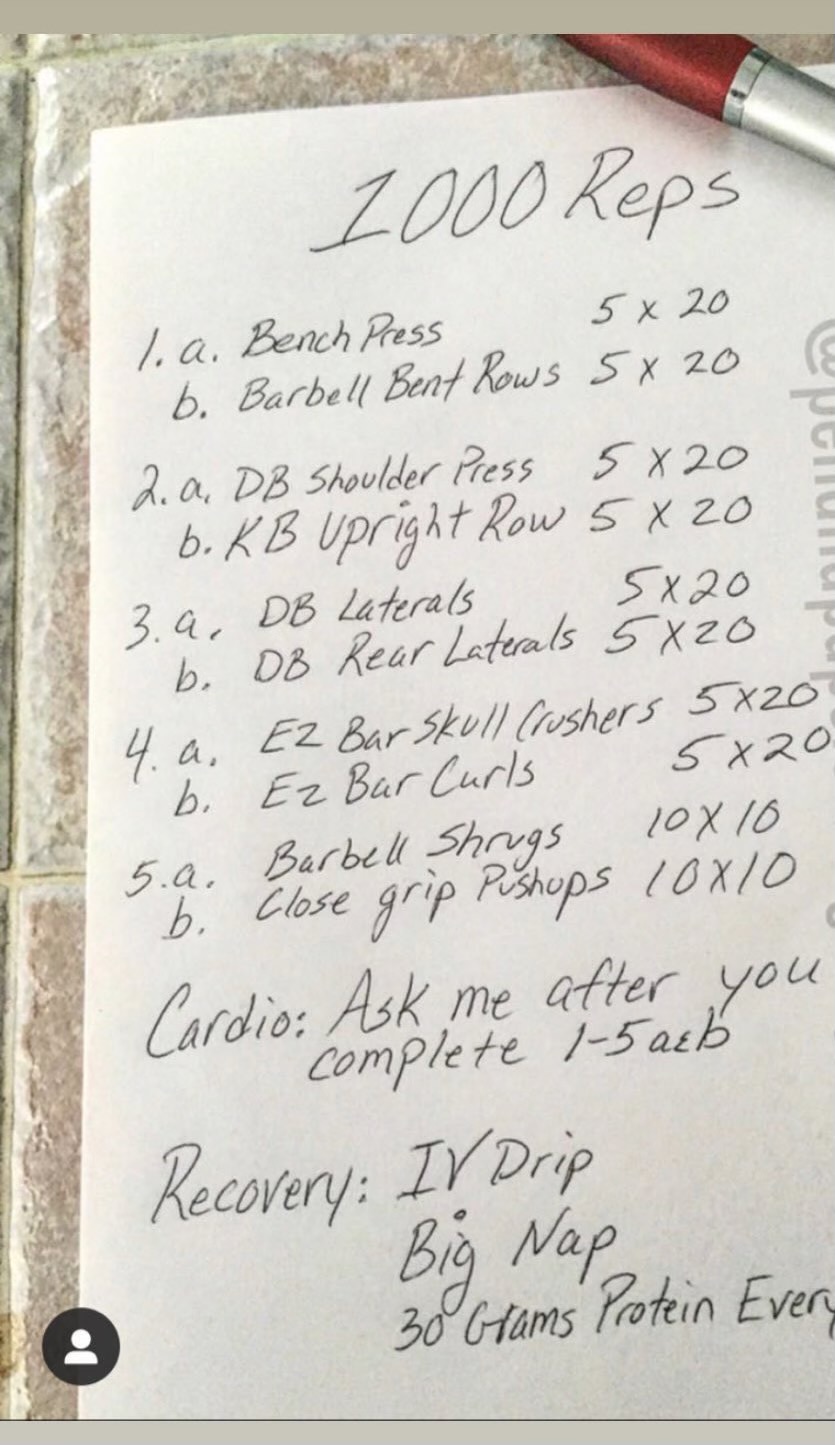 1000 Reps
1. a. Bench Press 5 x 20
b. Barbell Bent Rows 5 x 20
2. a. DB Shoulder Press 5 x 20
b. KB Upright Row 5 x 20
3. a. DB Laterals 5x20
b. DB Rear Laterals 5x20
4. a. EZ Bar Skull Crushers 5x20
b. Ez Bar Curls 5x20
5. a. Barbell Shrugs 10x10
b. Close grip Pushups 10x10
Cardio: Ask me after you
complete 1-5 a&b
Recovery: IV Drip
Big Nap
30 Grams Protein Every